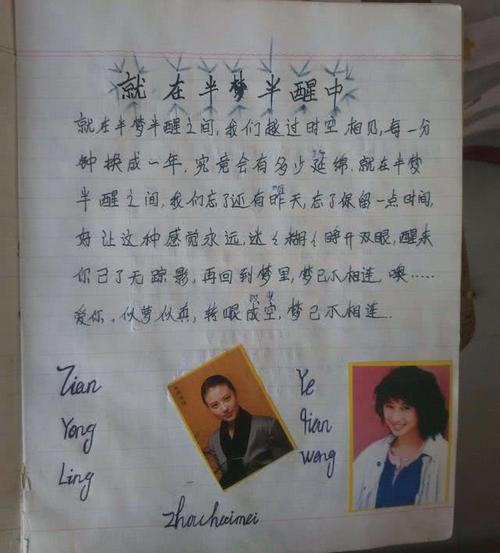 就在半梦半醒中
就在半梦半醒之间,我们越过时空相见,每一分
钟换成一年,究竟会有多少延绵.就在半梦
半醒之间,我们忘了还有昨天,忘了保留一点时间,
好让这种感觉永远.迷迷糊糊睁开双眼,醒来
你已了无踪影,再回到梦里,梦已不相连.噢……
爱你.似梦似真,转眼成空,梦已不相连.
Tian
Yong
Ling
Ye
tian
Weng
zhouhaimei